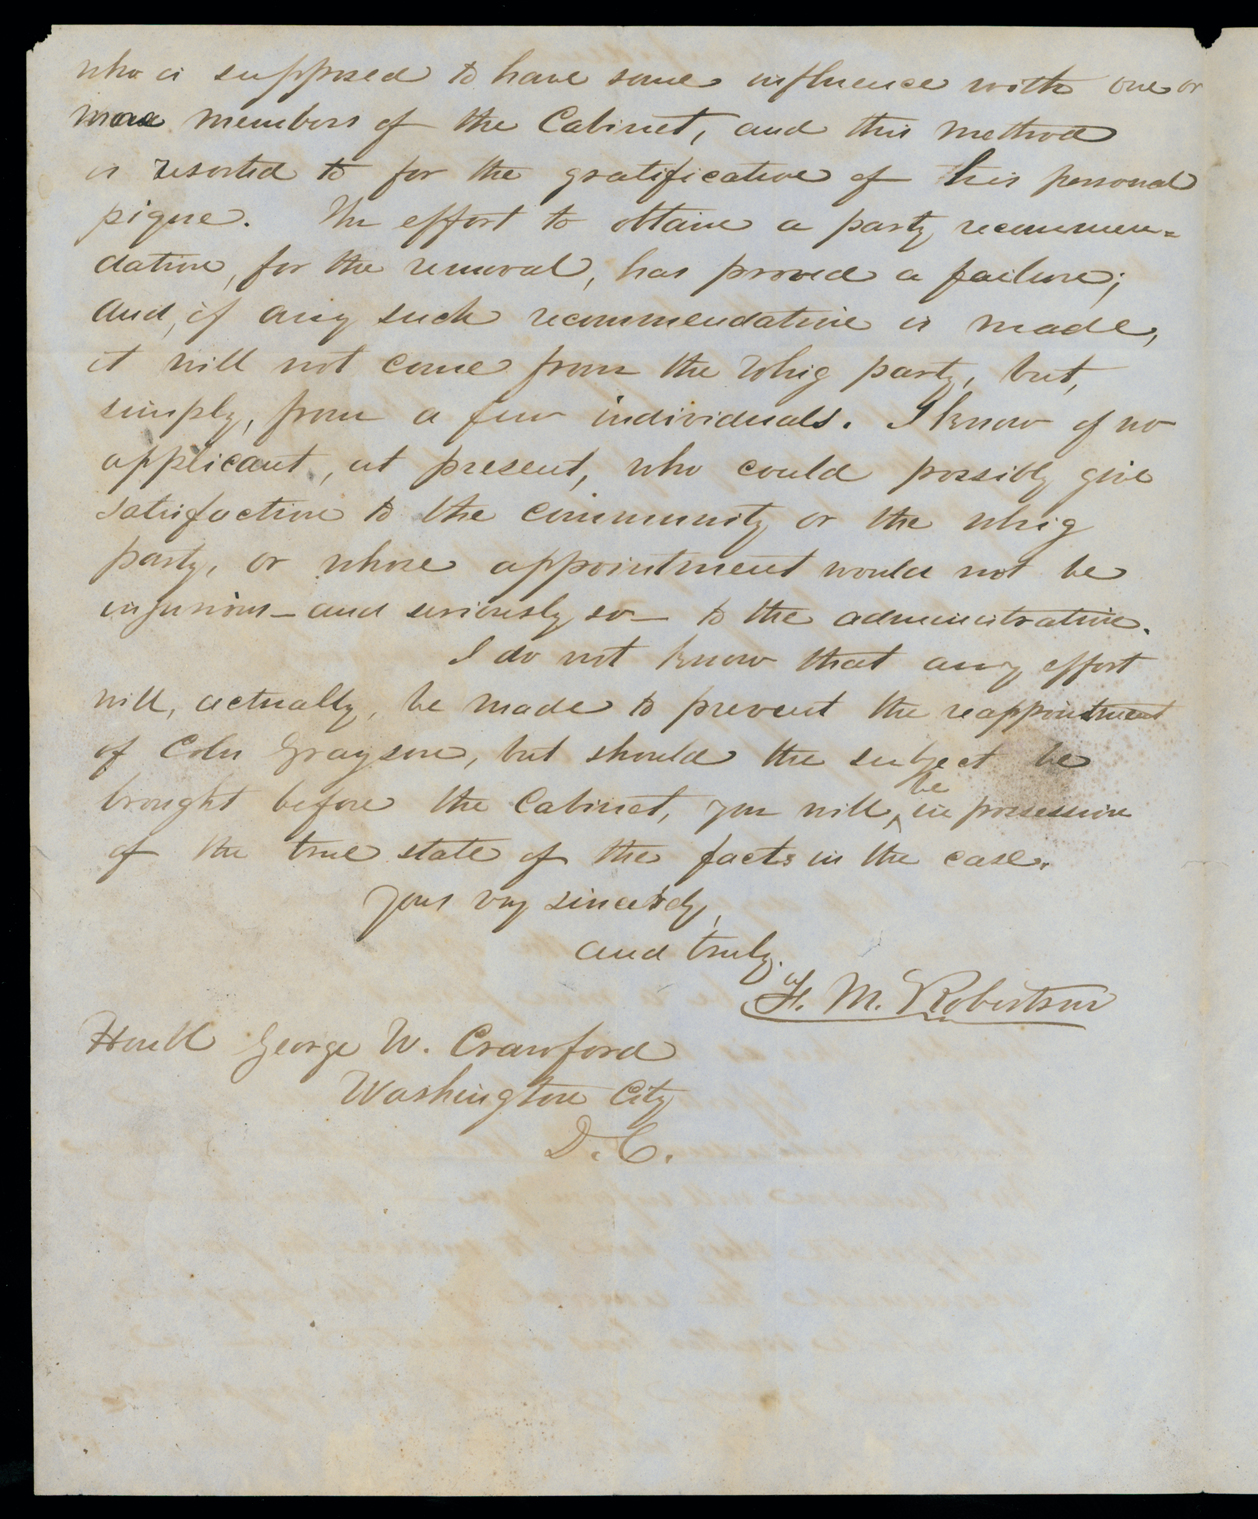 who is supposed to have some influence with one or
more members of the Cabinet, and this method
is resorted to for the gratification of his personal
pique. The effort to obtain a party recommen=
dation, for the removal, has proved a failure;
and, if any such recommendation is made,
it will not come from the Whig party, but,
simply, from a few individuals. I know of no
applicant, at present, who could possibly give
satisfaction to the community or the whig
party, or whose appointment would not be
injurious – and seriously so – to the administration.
I do not know that any effort
will, actually, be made to prevent the reappointment
of Coln Grayson, but should the subject be
brought before the Cabinet, you will ^be in possession
of the true state of the facts in the case.
Yours very sincerely,
and truly.
F. M. Robertson
Honbl George W. Crawford
Washington City
D. C.